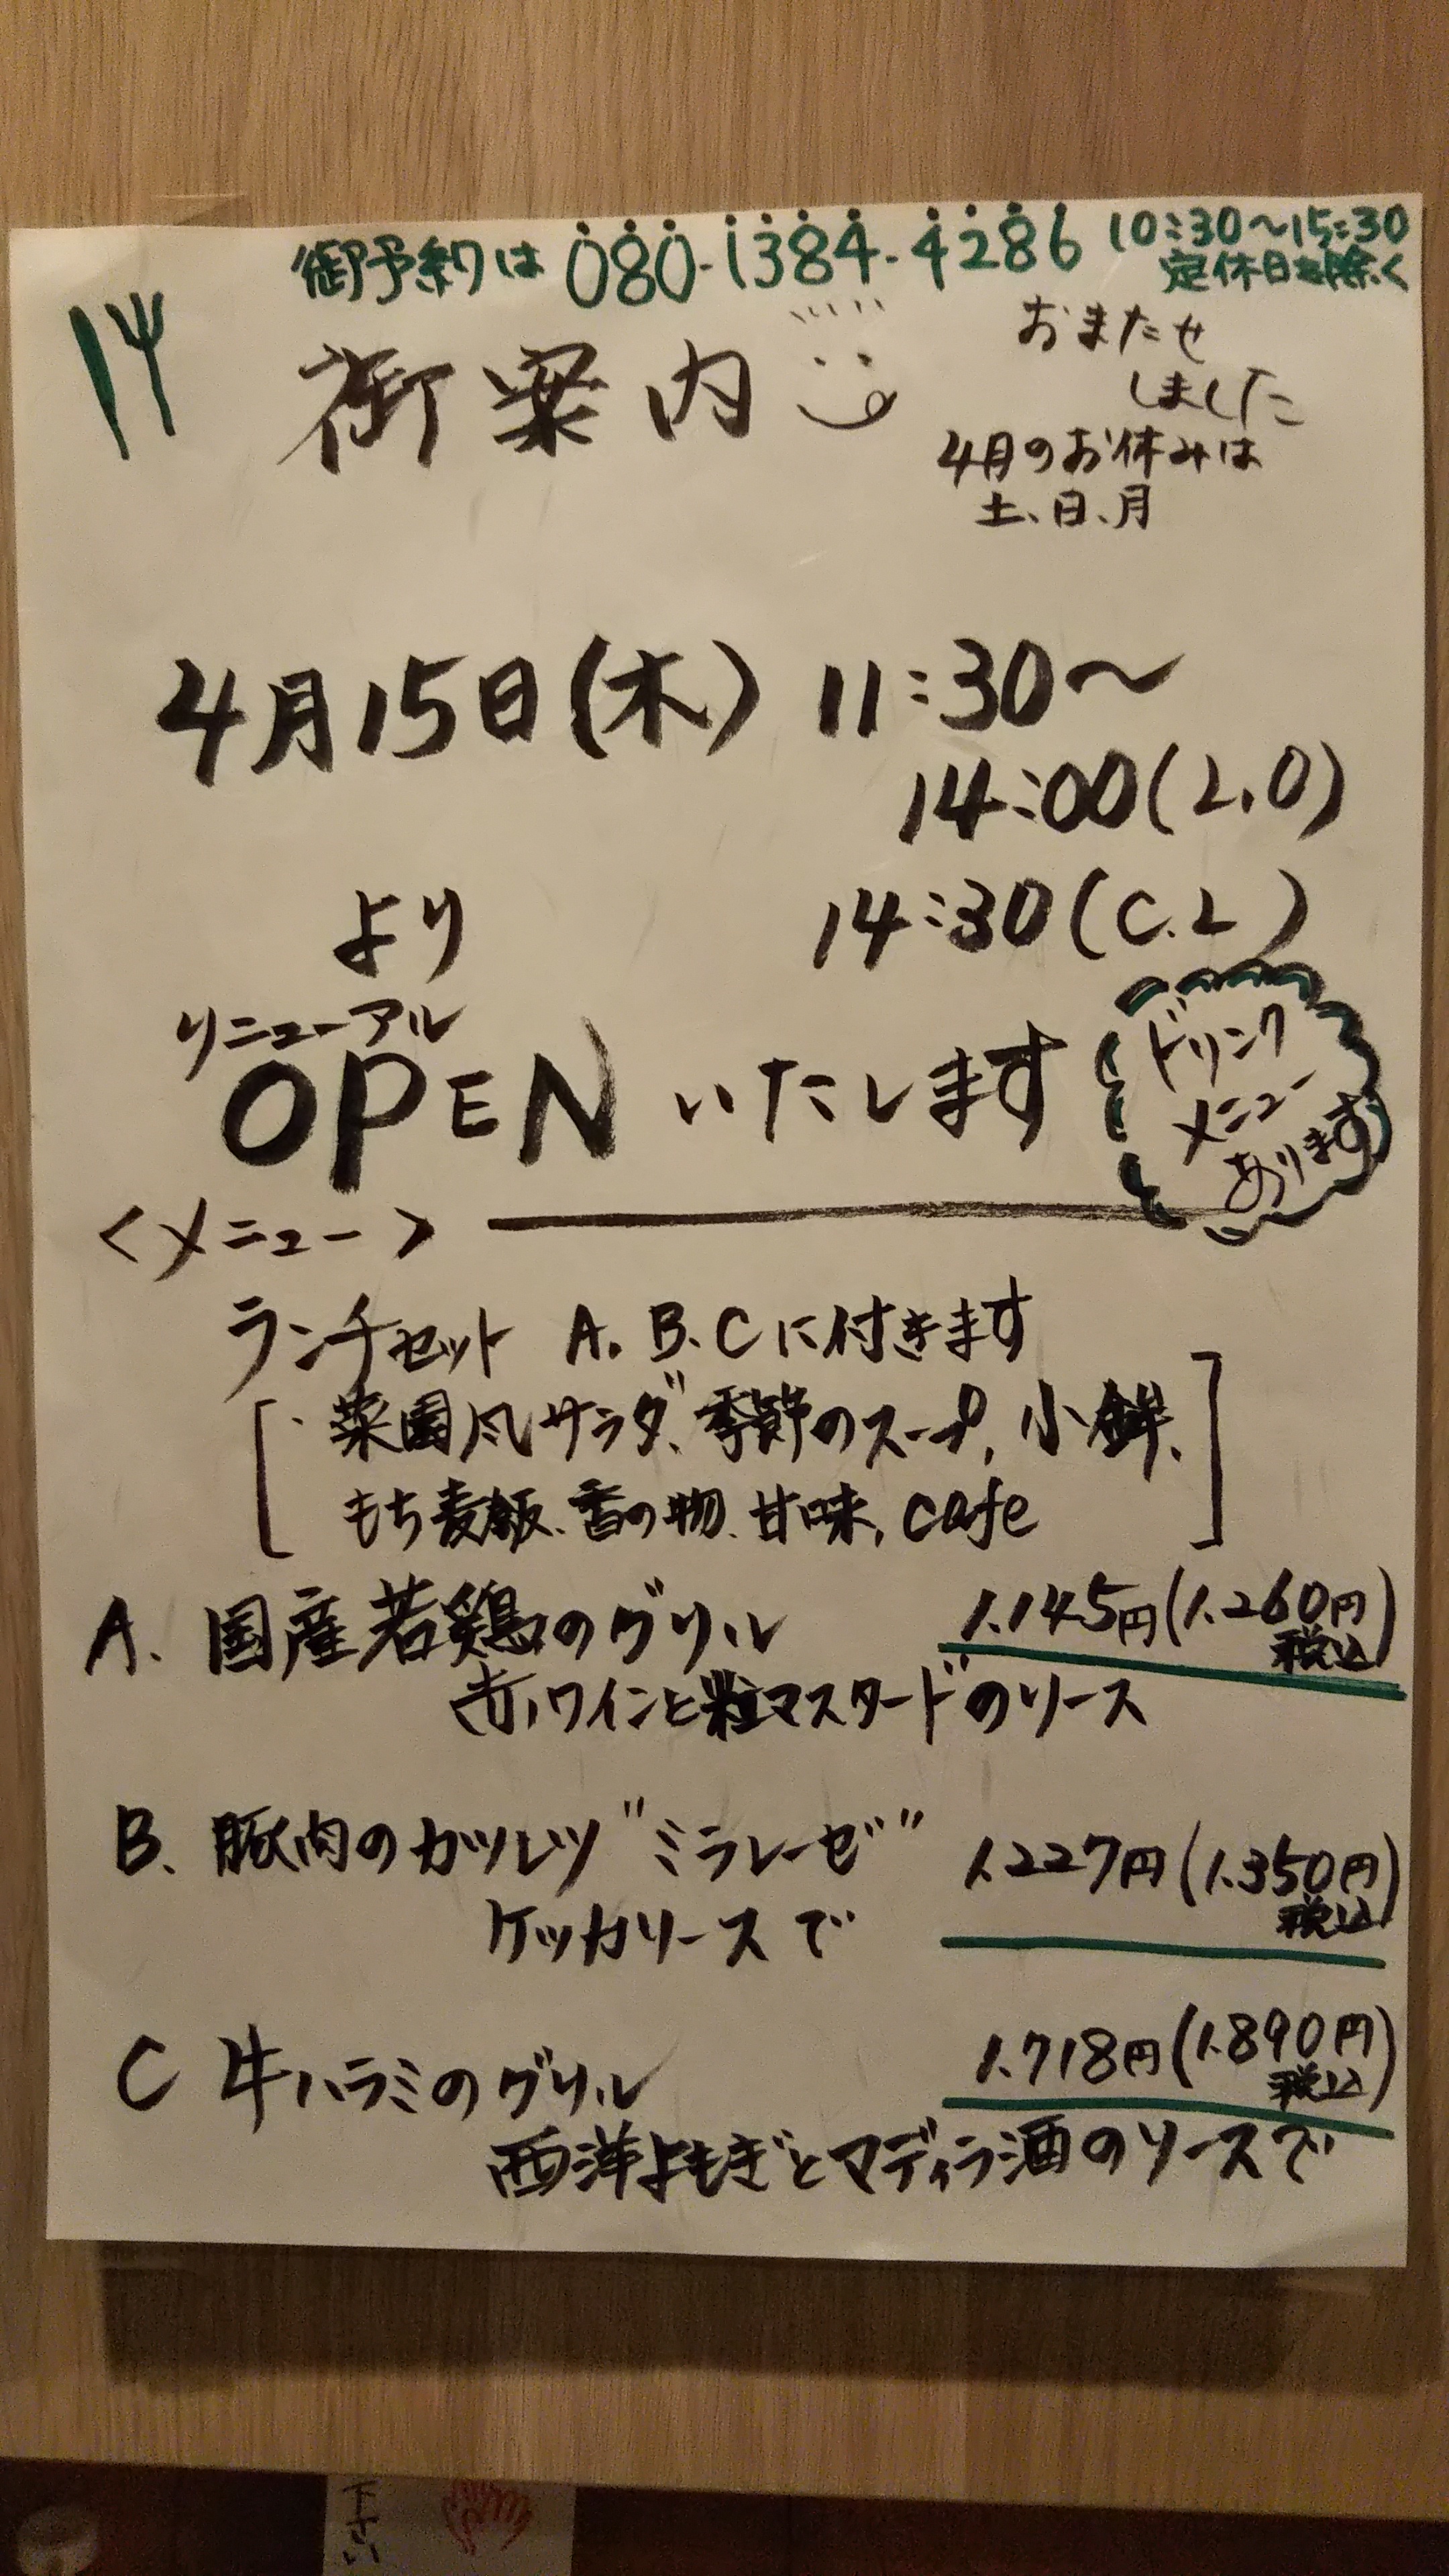 御予約は 080-1384-4286 10:30〜15:30
定休日を除く
御案内
おまたせ
しました
4月のお休みは
土、日、月
4月15日(木) 11:30〜
14:00(L.O)
より 14:30(C.L)
リニューアル
OPENいたします
ドリンク
メニュー
あります
<メニュー>
ランチセット A.B.Cに付きます
・菜園風サラダ、季節のスープ、小鉢、
もち麦飯、香の物、甘味、cafe
A. 国産若鶏のグリル 1.145円(1.260円税込)
赤ワインと粒マスタードのソース
B. 豚肉のカツレツ"ミラレーゼ" 1.227円(1.350円税込)
ケッカソースで
C 牛ハラミのグリル 1.718円(1.890円税込)
西洋よもぎとマディラ酒のソースで
下さい